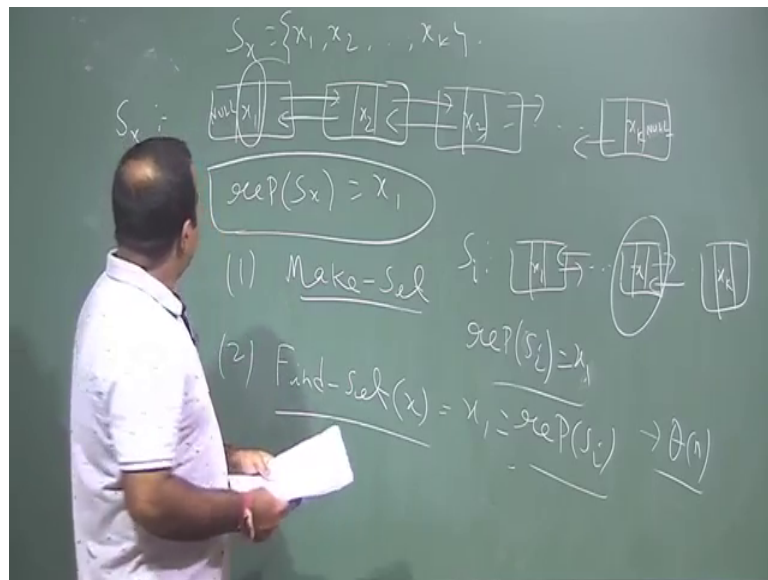 Sx = {x1, x2, ..., xk}.
Sx :- NULL x1 x2 x3 ... xk NULL
rep(Sx) = x1
(1) Make-Set
Si: x1 ... x ... xk
rep(Si) = x1
(2) Find-Set(x) = x1 = rep(Si) → θ(n)